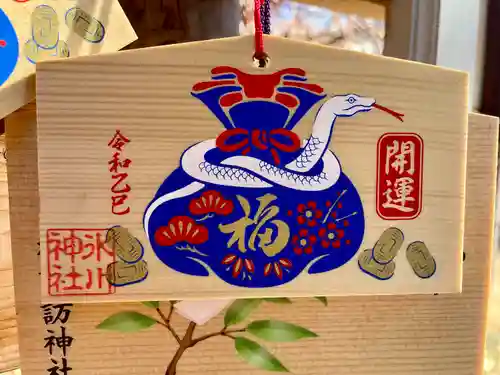 令和乙巳
開運
福
氷川
神社
訪神社